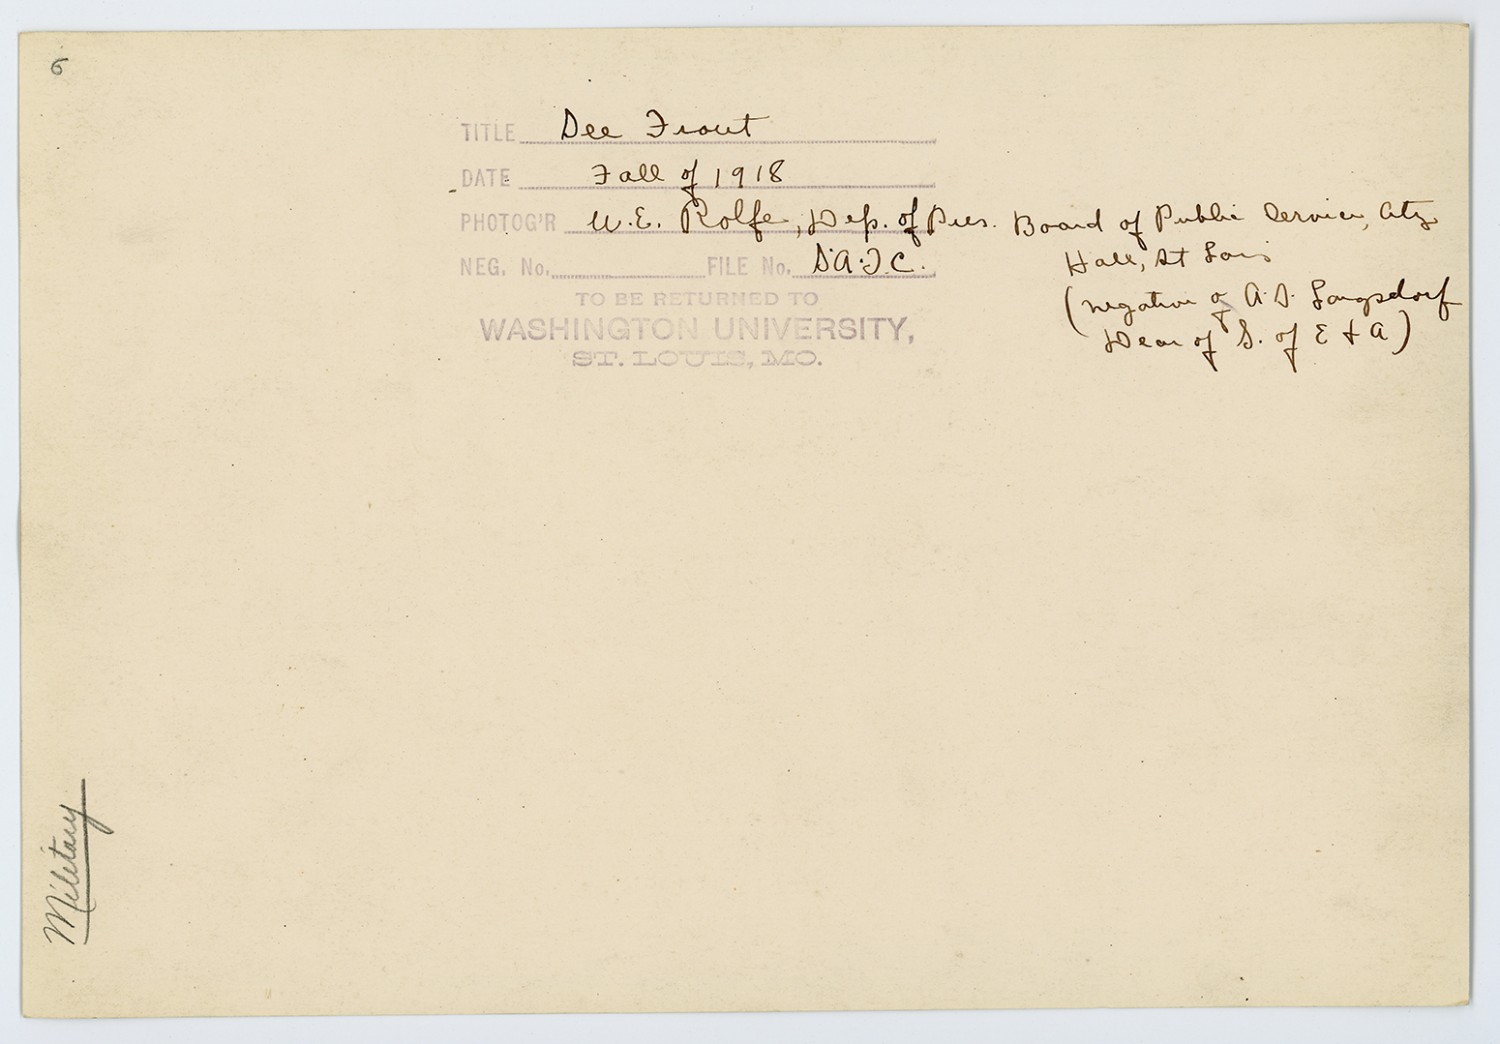 6
TITLE See Front
DATE Fall of 1918
PHOTOG'R W.E. Rolfe, Dep. of Pres. Board of Public Service, City
Hall, St Louis
NEG. No. FILE No. S.A.T.C.
(negative of A.S. Langsdorf
Dean of S. of E & A)
TO BE RETURNED TO
WASHINGTON UNIVERSITY,
ST. LOUIS, MO.
Military